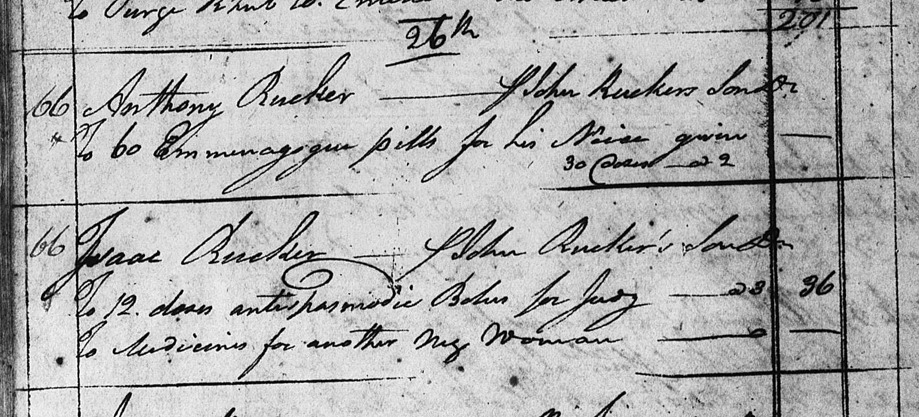 To Purge Rhub
201
26th
66 Anthony Rucker — John Ruckers Son Dr
To 60 Emmenagogue pills for his Neice gwin —
30 doses — a 2
66 Isaac Rucker — John Rucker's Son Dr
To 12 doses antispasmodic Bolus for Judy — a 3 36
To Medicines for another Neg Woman — —